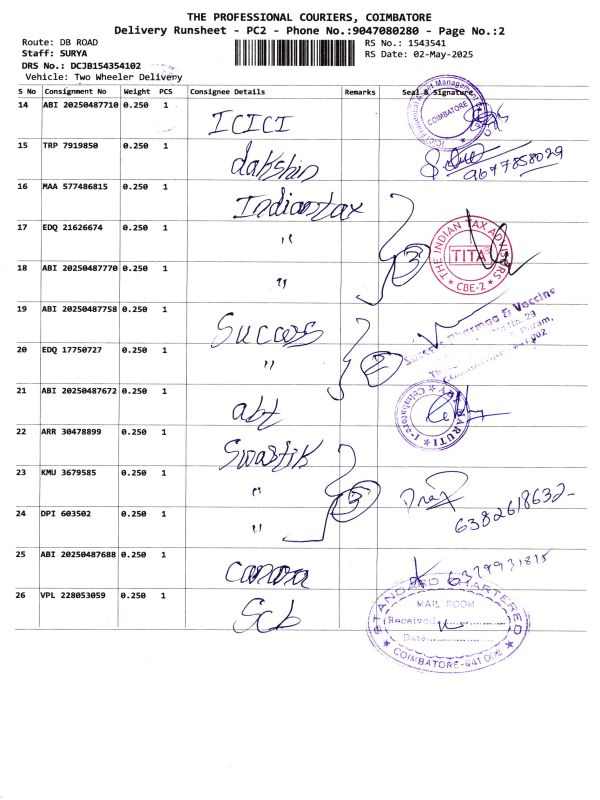 THE PROFESSIONAL COURIERS, COIMBATORE
Delivery Runsheet - PC2 - Phone No.:9047080280 - Page No.:2
Route: DB ROAD
RS No.: 1543541
Staff: SURYA
RS Date: 02-May-2025
DRS No.: DCJB154354102
Vehicle: Two Wheeler Delivery
S No Consignment No Weight PCS Consignee Details Remarks Seal & Signature
14 ABI 20250487710 0.250 1 ICICI
COIMBATORE
15 TRP 7919850 0.250 1 dakshin
9677858029
16 MAA 577486815 0.250 1 Indiantax
17 EDQ 21626674 0.250 1 "
3
THE INDIAN TAX ADVISORS
TITA
* CBE-2 *
18 ABI 20250487770 0.250 1 "
19 ABI 20250487758 0.250 1 Success
Pharmaa & Vaccine
20 EDQ 17750727 0.250 1 "
2
21 ABI 20250487672 0.250 1 abt
MARUTI
Coimbatore
22 ARR 30478899 0.250 1 Swastik
23 KMU 3679585 0.250 1 "
3
6382618632
24 DPI 603502 0.250 1 "
25 ABI 20250487688 0.250 1 canara
6379931815
26 VPL 228053059 0.250 1 Scb
STANDARD CHARTERED
MAIL ROOM
Received
Date
COIMBATORE-641 002